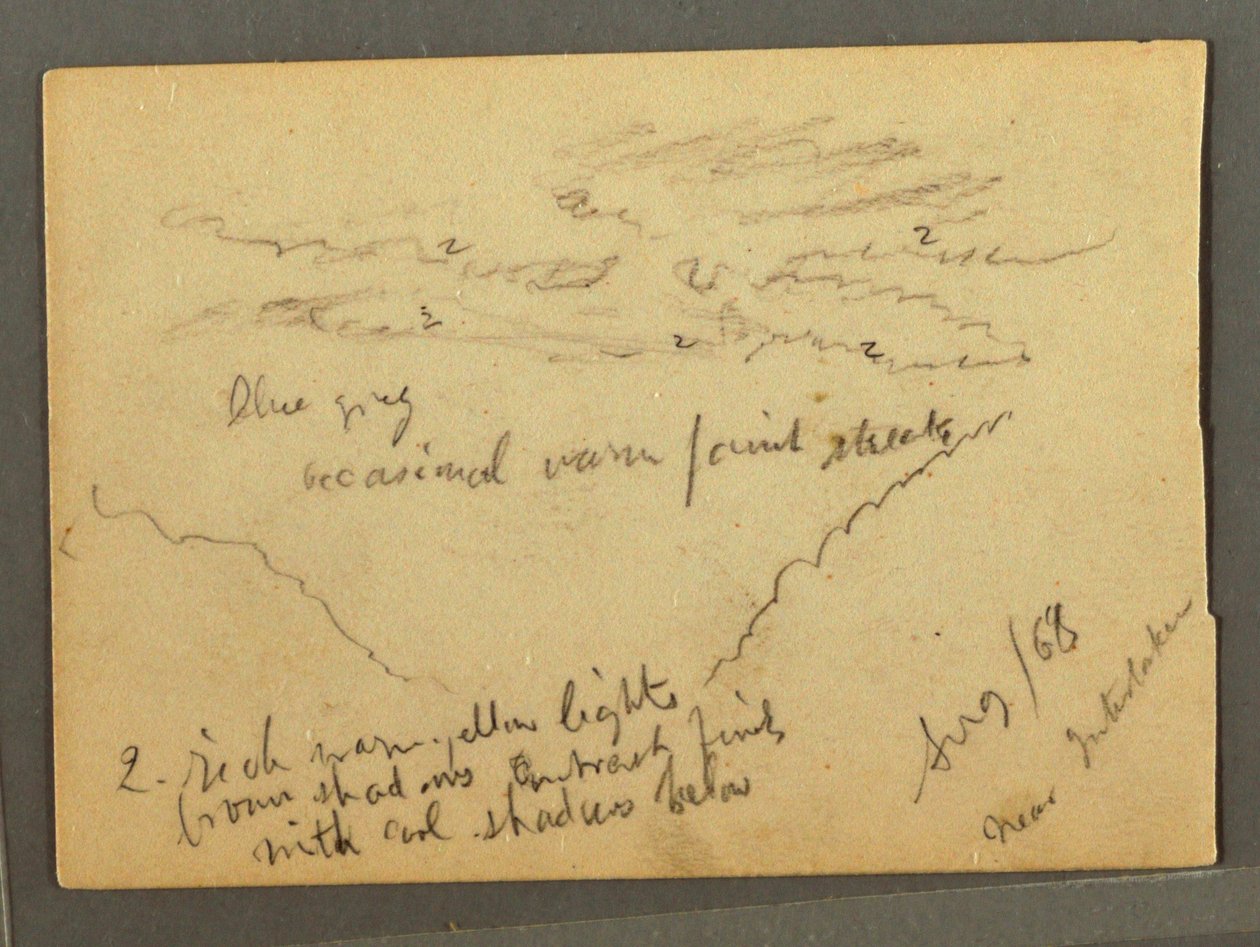 2
2
2
2
2
blue grey
occasional warm faint streaks
2. rich warm yellow lights
brown shadows contrast
with cool shadows below
Aug /68
near Interlaken